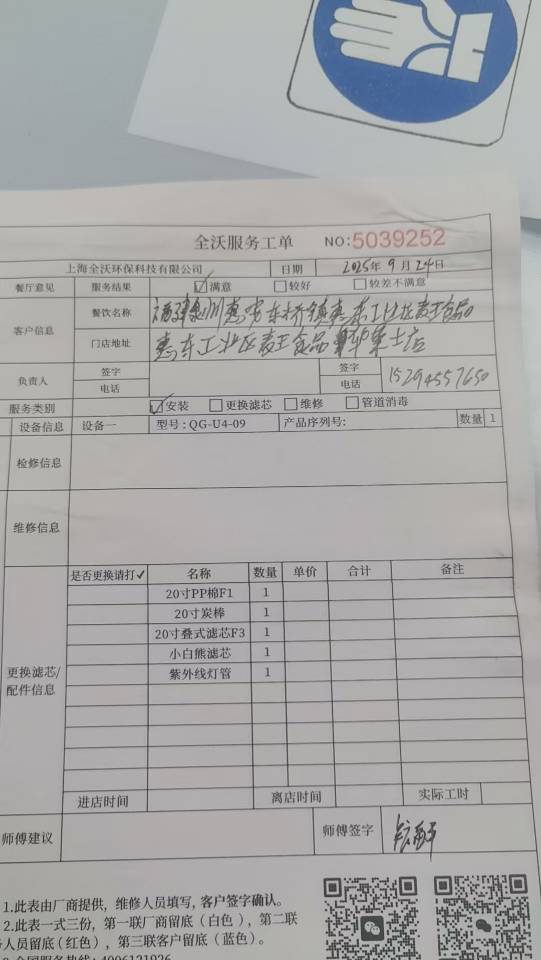 全沃服务工单 NO:5039252
上海全沃环保科技有限公司 日期 2025年9月24日
餐厅意见 服务结果 ☑满意 □较好 □较差不满意
客户信息 餐饮名称 福建泉州惠安东桥镇惠东工业区麦王食品
门店地址 惠东工业区麦王食品华莱士店
负责人 签字 签字
电话 电话 15294557650
服务类别 ☑安装 □更换滤芯 □维修 □管道消毒
设备信息 设备一 型号:QG-U4-09 产品序列号: 数量 1
检修信息
维修信息
更换滤芯/配件信息 是否更换请打✓ 名称 数量 单价 合计 备注
20寸PP棉F1 1
20寸炭棒 1
20寸叠式滤芯F3 1
小白熊滤芯 1
紫外线灯管 1
进店时间 离店时间 实际工时
师傅建议 师傅签字
1.此表由厂商提供，维修人员填写，客户签字确认。
2.此表一式三份，第一联厂商留底（白色），第二联
人员留底(红色)，第三联客户留底（蓝色）。
全国服务热线: 4006121926